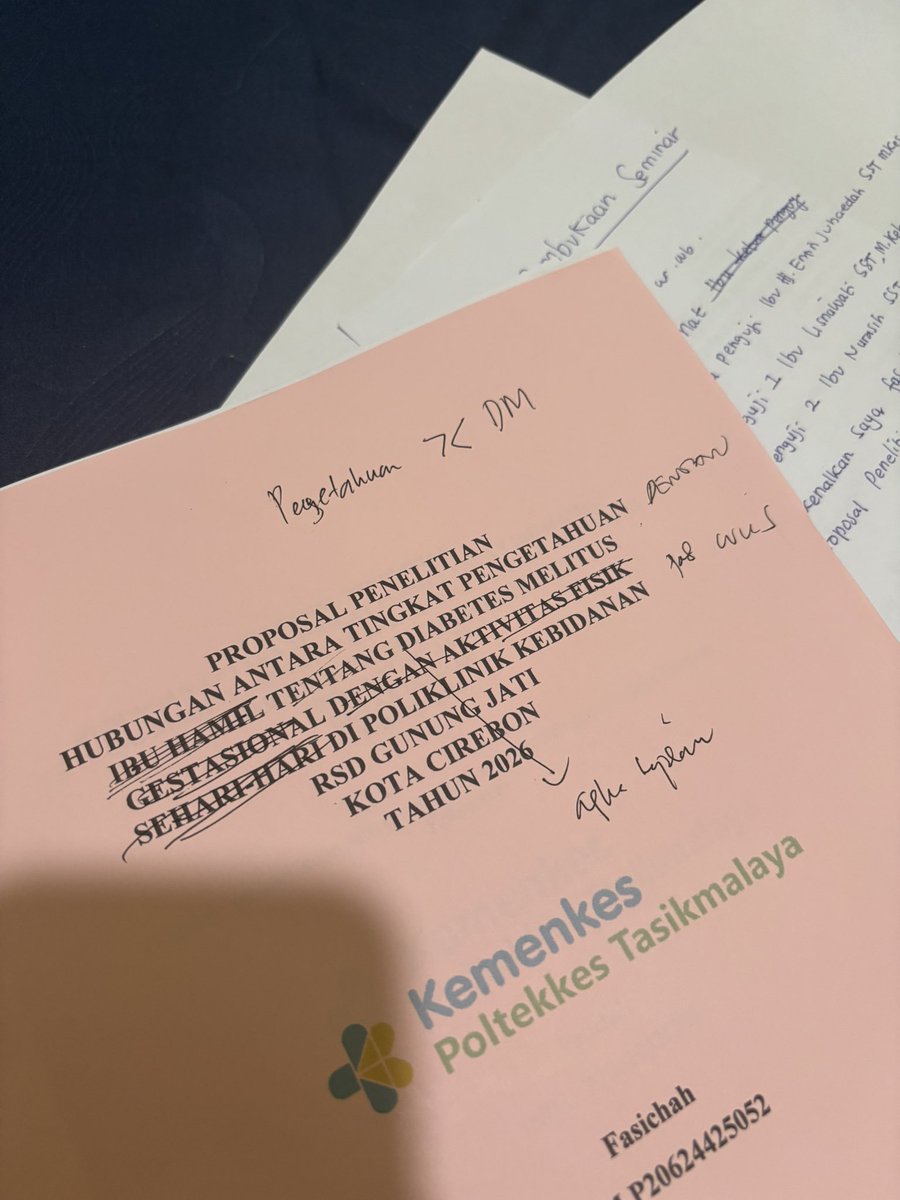 mbukaan Seminar
wr.wb.
Ibu Ketua Penguji
penguji Ibu Hj. Entin Juhaedah SST M.Kes
uji 1 Ibu Lisnawati SST, M.Keb
enguji 2 Ibu Nurasih SST
kenalkan Saya fas
oposal Peneliti
Pengetahuan DM
PROPOSAL PENELITIAN
HUBUNGAN ANTARA TINGKAT PENGETAHUAN DENGAN
IBU HAMIL TENTANG DIABETES MELITUS WUS
GESTASIONAL DENGAN AKTIVITAS FISIK
SEHARI-HARI DI POLIKLINIK KEBIDANAN
RSD GUNUNG JATI
KOTA CIREBON
TAHUN 2026
Kemenkes
Poltekkes Tasikmalaya
Fasichah
P20624425052